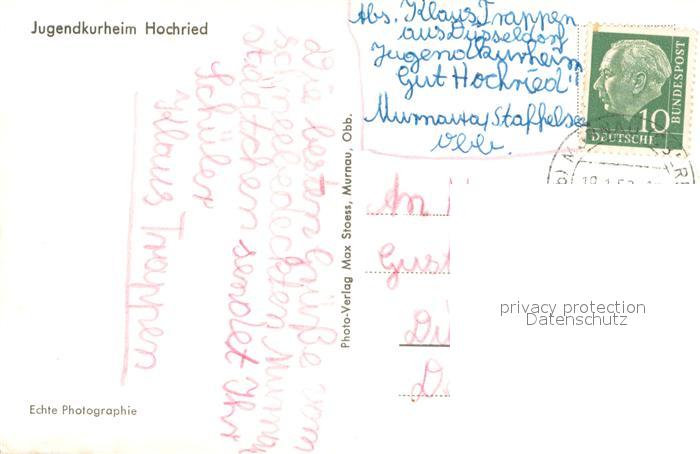 Jugendkurheim Hochried
Die besten Grüße vom
schneebedeckten Murnau
städtchen sendet Ihr
Schüler
Klaus Trappen
Echte Photographie
Photo-Verlag Max Stoess, Murnau, Obb.
Abs. Klaus Trappen
aus Düsseldorf
Jugendkurheim
Gut Hochried
Murnau a/Staffelsee
Obb.
10
DEUTSCHE
BUNDESPOST
An
Gust
Dü
privacy protection
Datenschutz